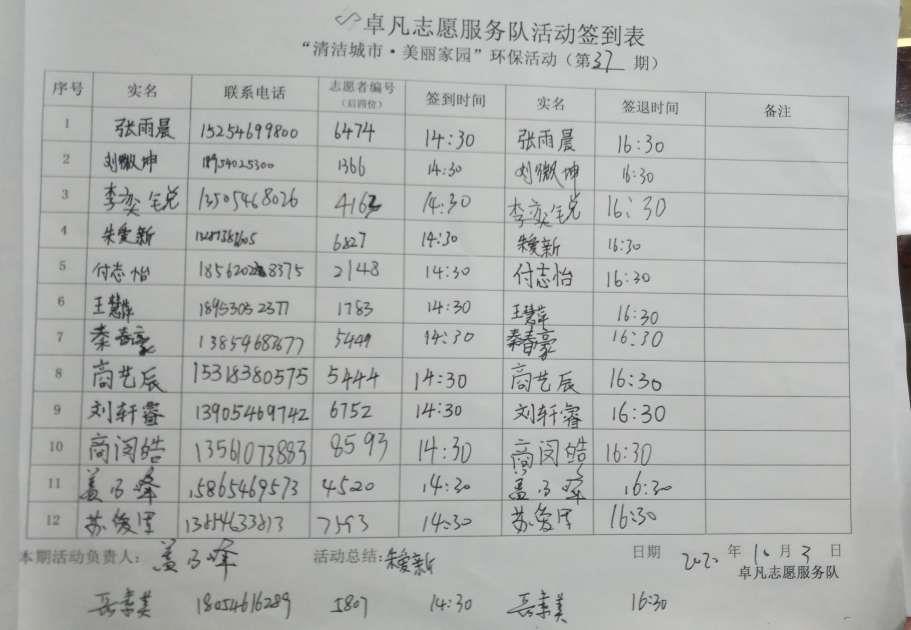 卓凡志愿服务队活动签到表
“清洁城市·美丽家园”环保活动（第37期）
序号 实名 联系电话 志愿者编号（后四位） 签到时间 实名 签退时间 备注
1 张雨晨 15254699800 6474 14:30 张雨晨 16:30
2 刘微坤 18954025300 1366 14:30 刘微坤 16:30
3 李奕 13505468026 4163 14:30 李奕 16:30
4 朱爱新 6827 14:30 朱爱新 16:30
5 付志怡 2148 14:30 付志怡 16:30
6 王慧萍 18953052377 1783 14:30 王慧萍 16:30
7 秦春豪 13854687677 5449 14:30 秦春豪 16:30
8 商艺辰 15318380575 5444 14:30 商艺辰 16:30
9 刘轩睿 13905469742 6752 14:30 刘轩睿 16:30
10 商闵皓 13561073883 8593 14:30 商闵皓 16:30
11 盖乃峰 15865469573 4520 14:30 盖乃峰 16:30
12 苏俊 7593 14:30 苏俊 16:30
本期活动负责人：盖乃峰 活动总结：朱爱新 日期 2020年10月3日
卓凡志愿服务队
岳秀美 18054616289 5807 14:30 岳秀美 16:30